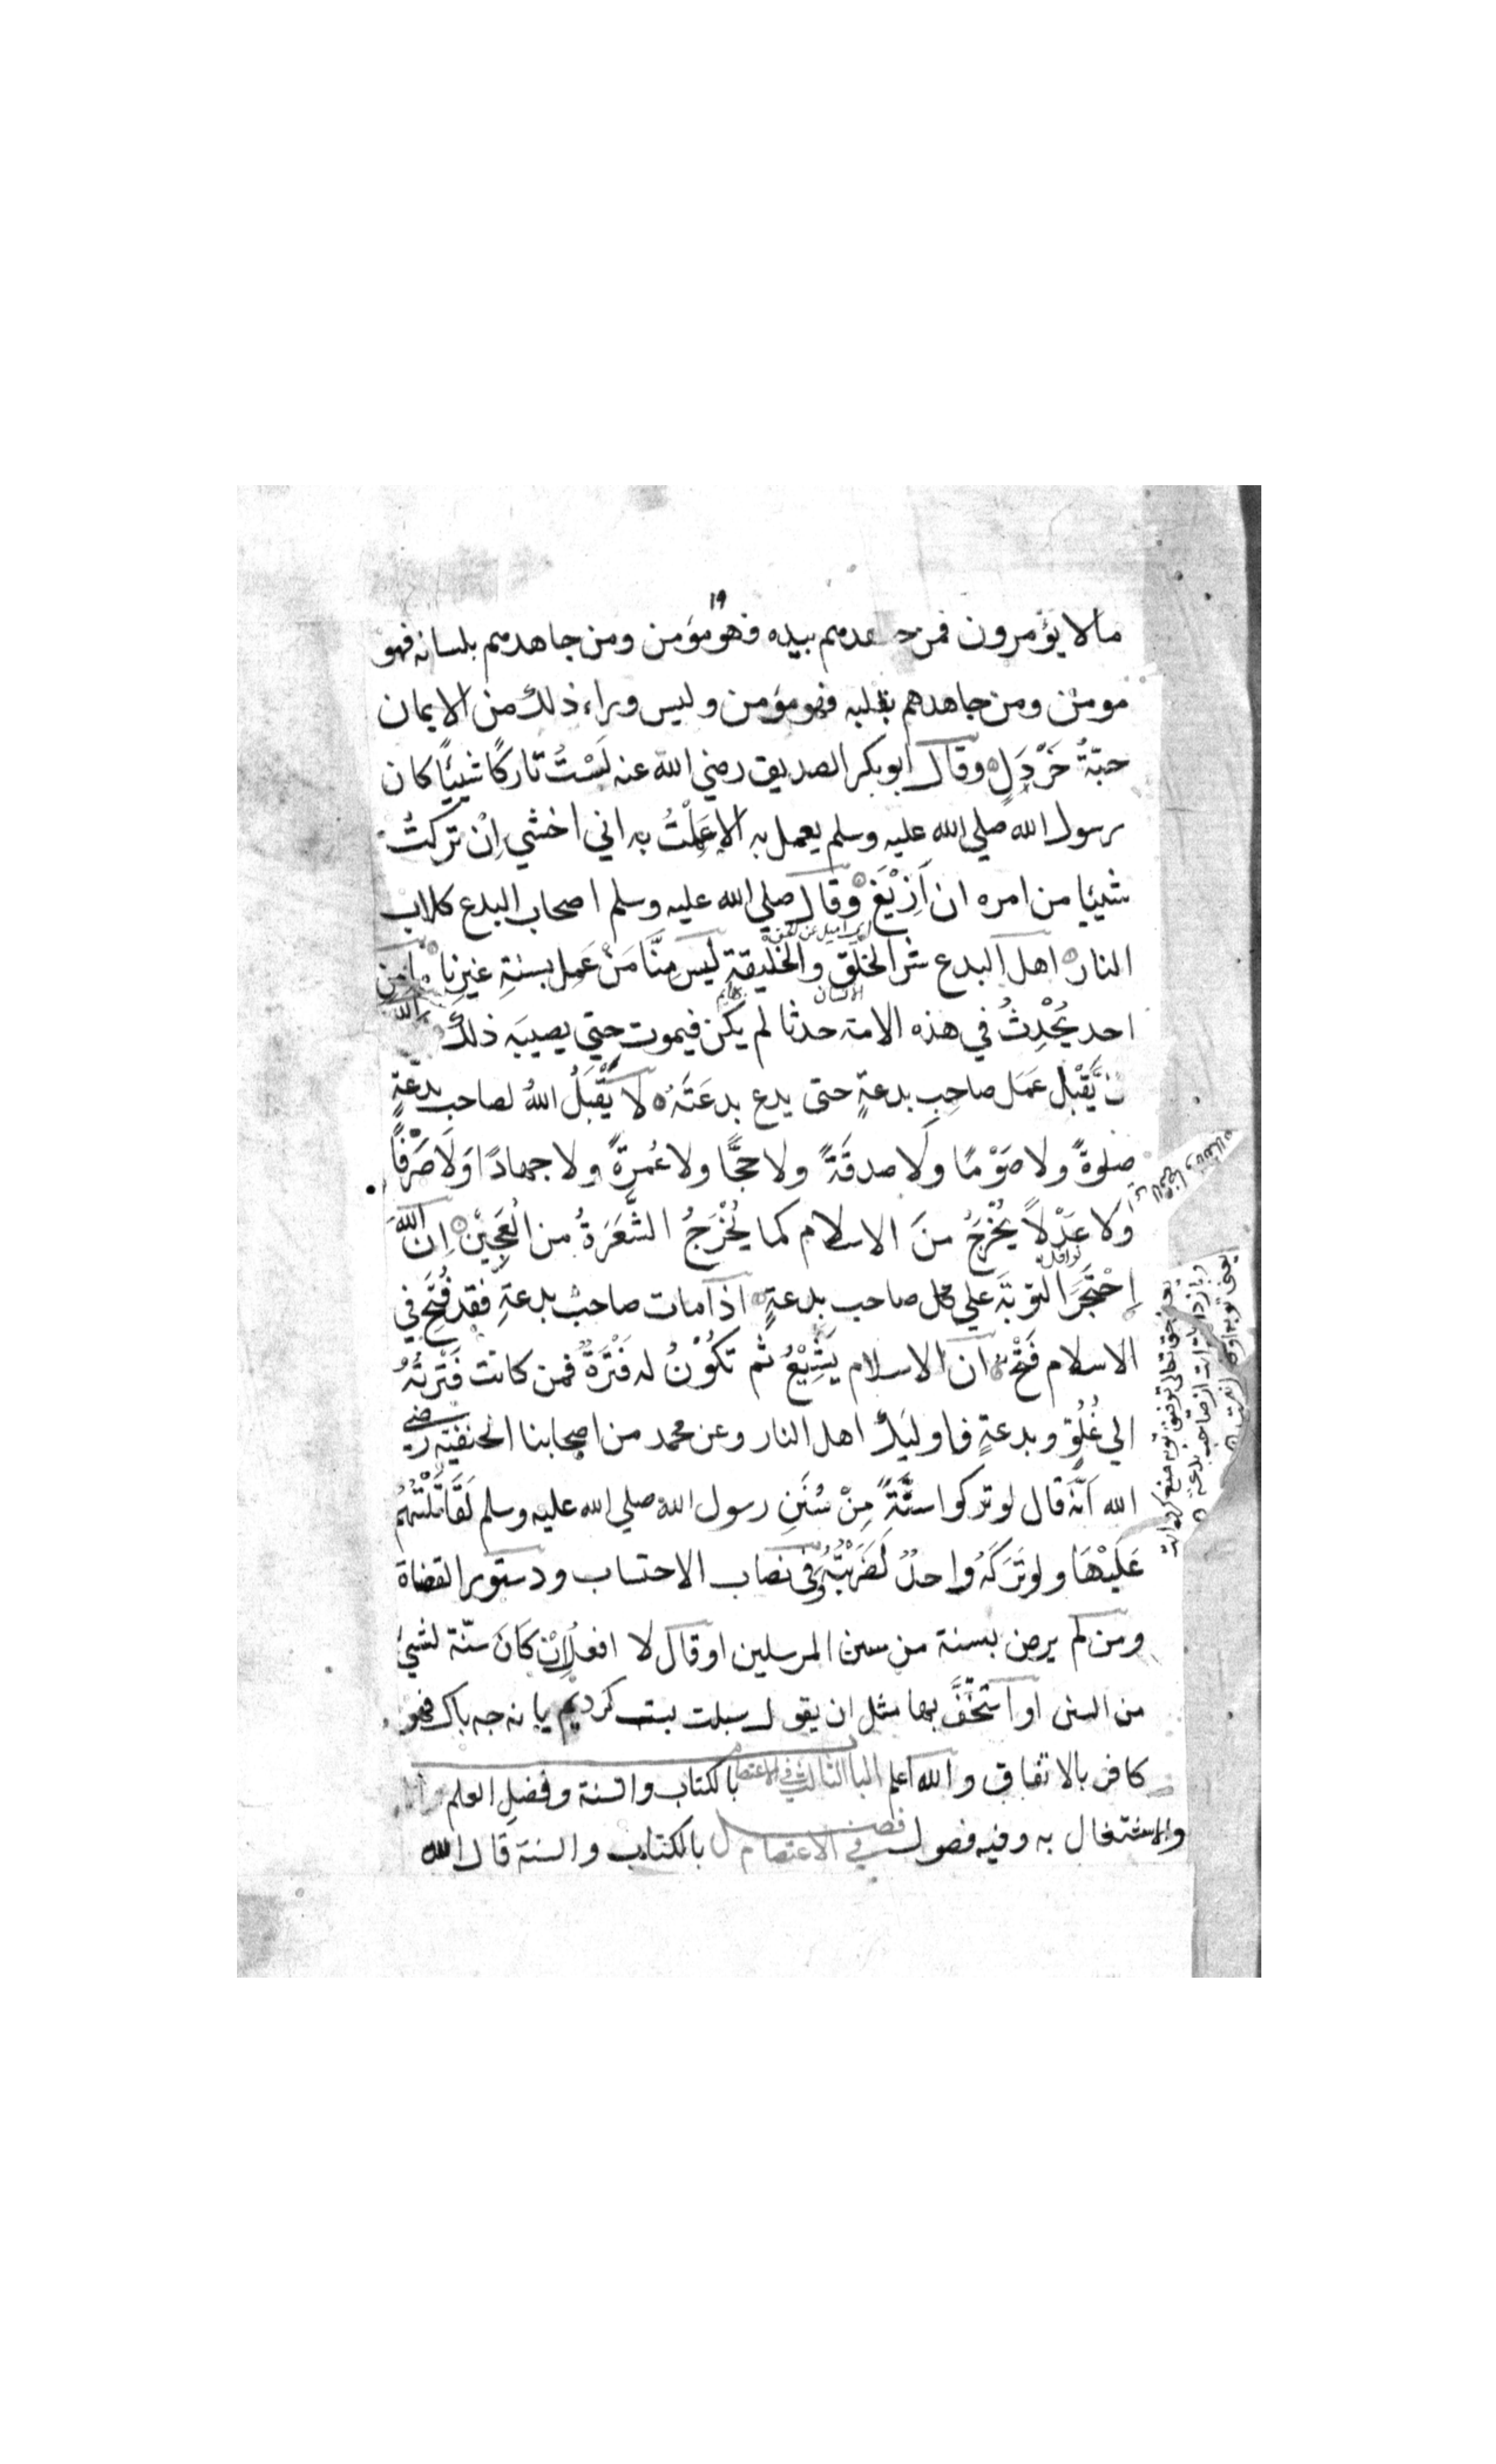 ١٩
مالا يؤمرون فمن جاهدهم بيده فهو مؤمن ومن جاهدهم بلسانه فهو
مومن ومن جاهدهم بقلبه فهو مؤمن وليس وراء ذلك من الايمان
حبّةُ خَرْدَلٍ وقال ابوبكر الصديق رضي الله عنه لَسْتُ تاركًا شيئًا كان
رسول الله صلي الله عليه وسلم يعمل به الا عَمِلْتُ به اني اخشي اِنْ تركتُ
شيئا من امره ان اَزِيْغَ وقال صلي الله عليه وسلم اصحاب البدع كلاب
النار اهل البدع شر الخَلْق والخليقةِ ليس مِنَّا مَنْ عَمِل بسنةِ غيرنا مامن
احد يُحْدِثُ في هذه الامة حدثا لم يكن فيموت حتي يصيبَه ذلك الله
ان يَّقْبل عَمَل صاحِبِ بدعةٍ حتى يدع بدعَتَهُ لا يَقْبَلُ اللهُ لصاحب بدعَةٍ
صلوةً ولا صَوْمًا ولا صدقَةً ولا حَجًّا ولا عُمرةً ولا جهادًا وَلَا صَرْفًا
ولا عَدْلاً يُخْرَجُ منَ الاسلام كما يُخْرَجُ الشَّعَرَةُ من العَجِيْنِ اِن اللهَ
اِحْتَجَرَ التوبَةَ علي كل صاحب بدعةٍ اذا مات صاحبُ بدعةٍ فقد فُتِحَ في
الاسلام فَتْحٌ ان الاسلام يَشِيْعُ ثم تكُوْنُ له فَتْرَةٌ فمن كانت فَتْرتُهُ
الي غُلُوٍّ وبدعةٍ فاوليك اهل النار وعن محمد من اصحابنا الحنفية رضي
الله اَنّه قال لو تركوا سنَّةً مِنْ سُنَنِ رسول الله صلي الله عليه وسلم لَقَاتَلْتُهُمْ
عَلَيْهَا ولو تَرَكَهُ واحدٌ لَضَرَبْتُهُ وفي نصاب الاحتساب ودستور القضاة
ومن لم يرض بسنة من سنن المرسلين او قال لا افعل اِنْ كَانَ سنّة لشيئ
من السنن او اسْتَخَفَّ بها مثل ان يقول سبلت بست كرديم يا نه چه باك فهو
كافر بالاتفاق والله اعلم الباب الثالث في الاعتصام بالكتاب والسنة وفضل العلم
والاشتغال به وفيه فصول فصل في الاعتصام بالكتاب والسنة قال الله
الانسان
بهايم
نوافل
حق تعالي توفيق توبه منع كرده است
از صاحب بدعة
يعني توبه او